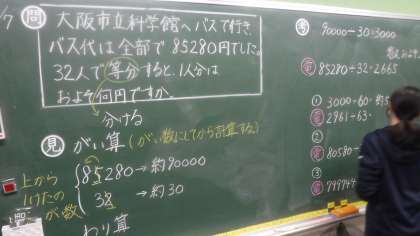 問 大阪市立科学館へバスで行き、
バス代は全部で85280円でした。
32人で等分すると、1人分は
およそ何円ですか。
分ける
見 がい算(がい数にしてから計算する)
上から
1けたの
がい数
85280→約90000
32→約30
わり算
考 90000÷30=3000
電 85280÷32=2665
① 3000÷60=約5
電 2961÷63=
②
電 80580÷
③
電 799744